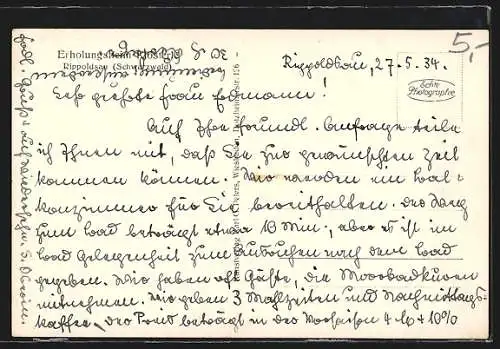 5,-
Erholungsheim
Rippoldsau (Schwarzwald)
Rippoldsau, 27.5.34.
Echte
Photographie
Sehr geehrte Frau Erdmann!
Auf Ihre freundl. Anfrage teile
ich Ihnen mit, daß Sie zur gewünschten Zeit
kommen können. Wir werden ein Bal-
konzimmer für Sie bereithalten. Der Weg
zum Bad beträgt etwa 10 Min., aber es ist im
Bad Gelegenheit zum Ausruhen nach dem Bad
gegeben. Wir haben oft Gäste, die Moorbadkuren
mitnehmen. Wir geben 3 Mahlzeiten und Nachmittags-
kaffee. Der Preis beträgt in der Vorsaison 4 M + 10%